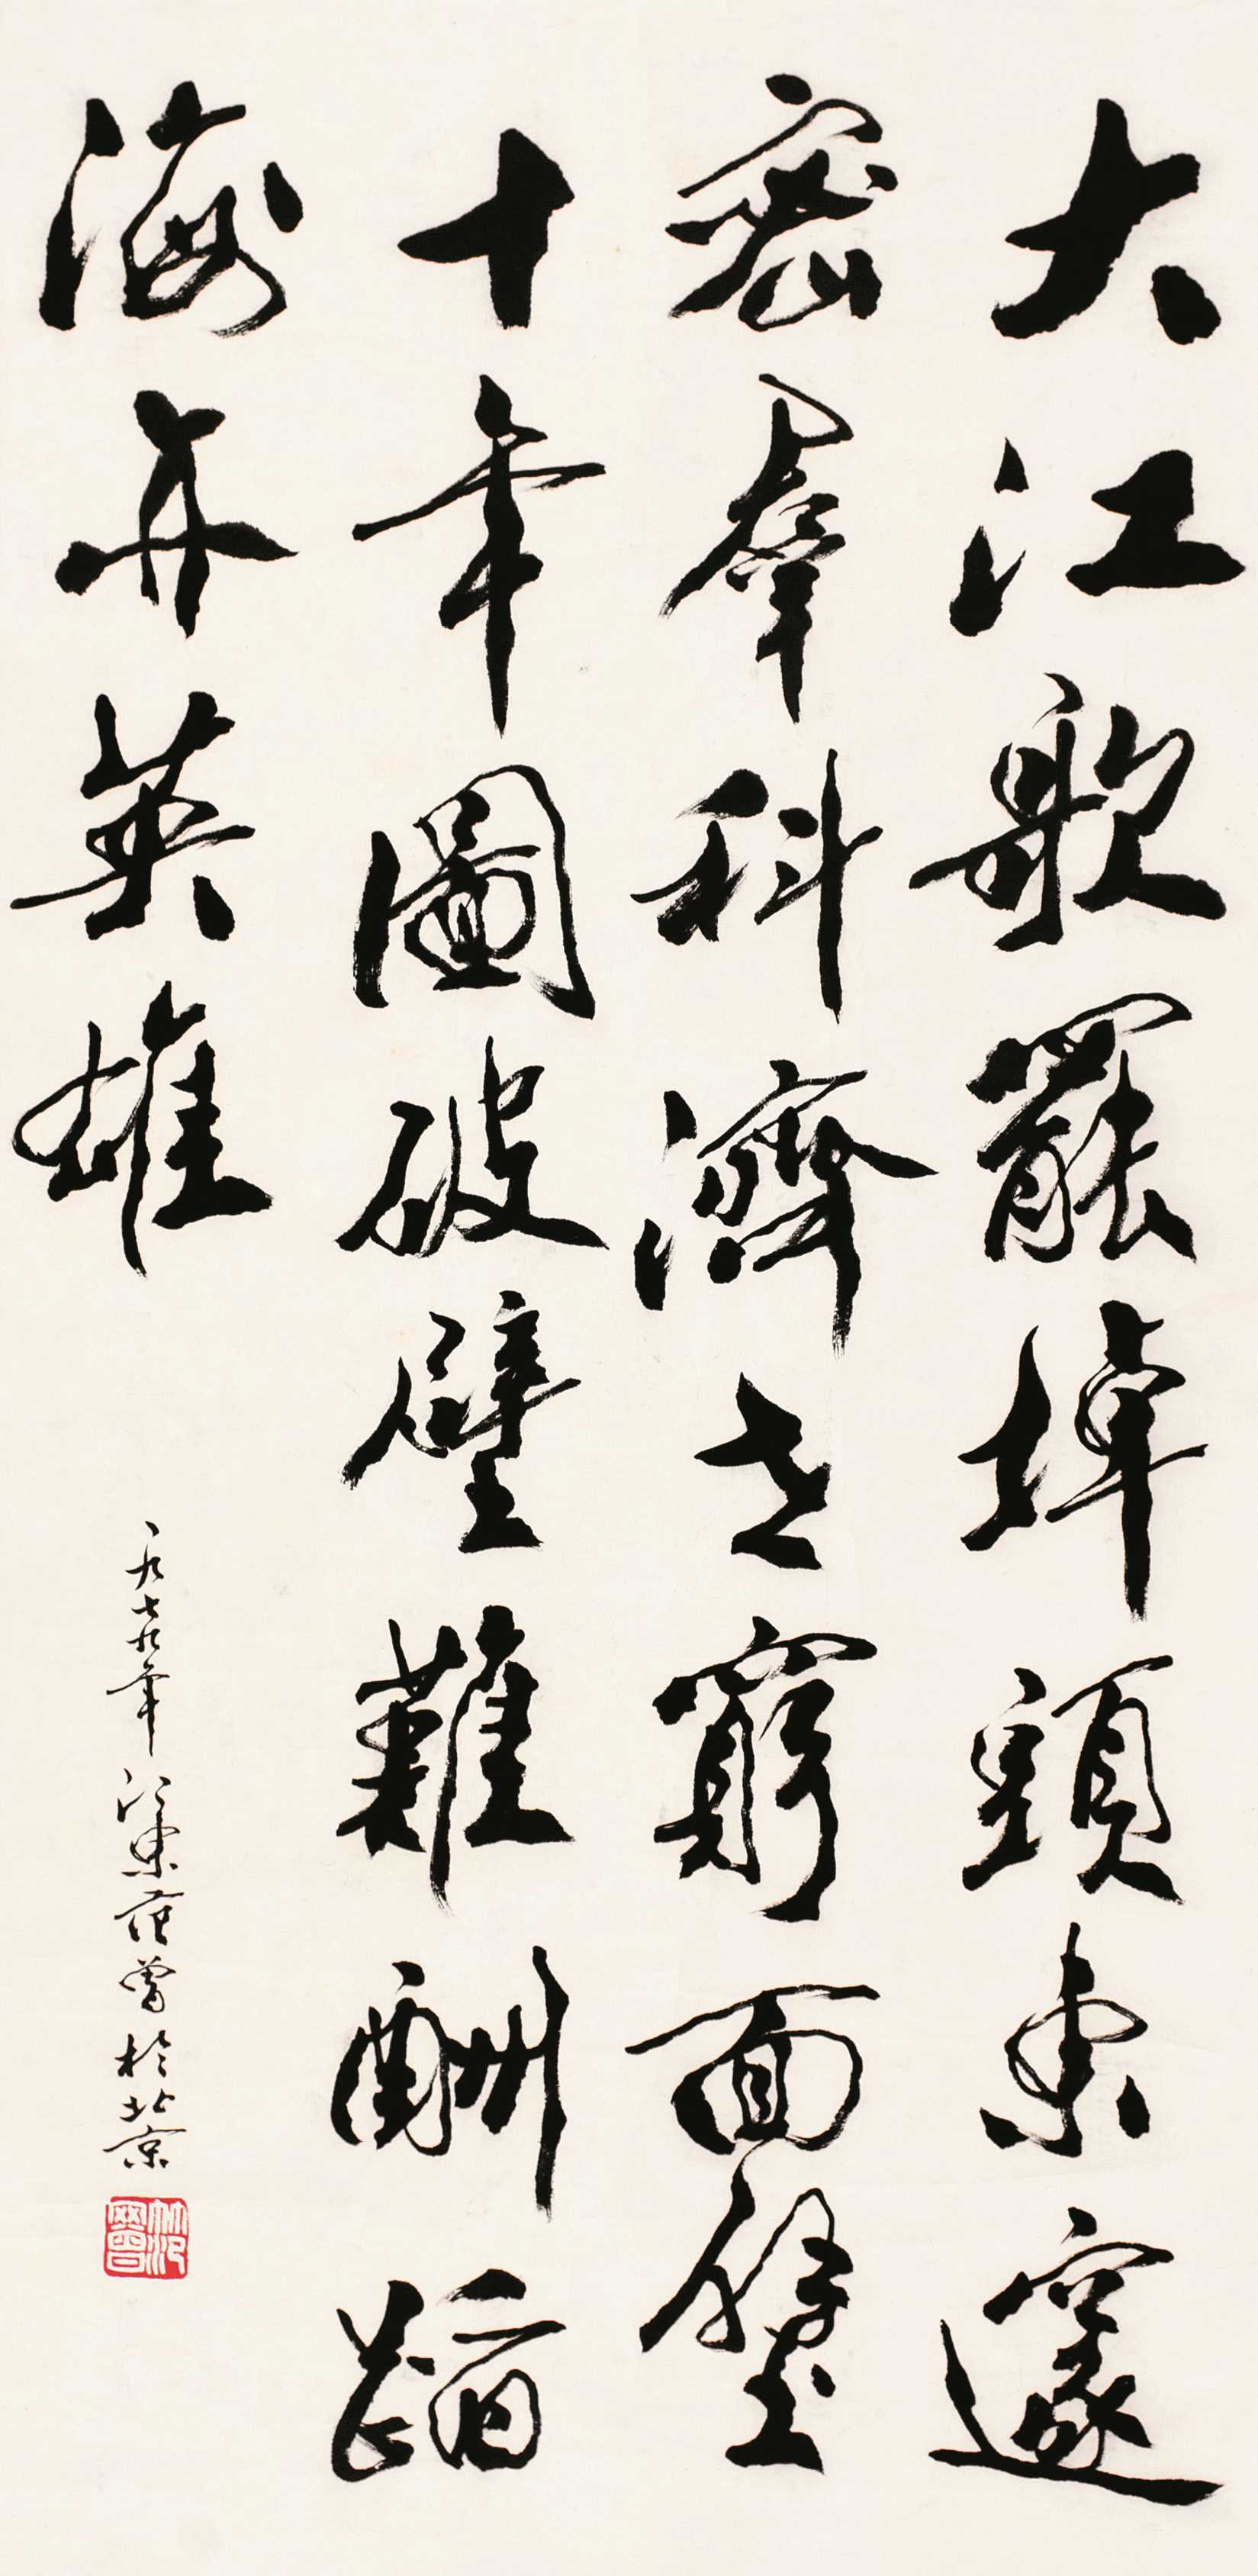 大江歌罷掉頭東邃
密羣科濟世窮面壁
十年圖破壁難酬蹈
海亦英雄
一九七九年 江東范曾於北京
范曾